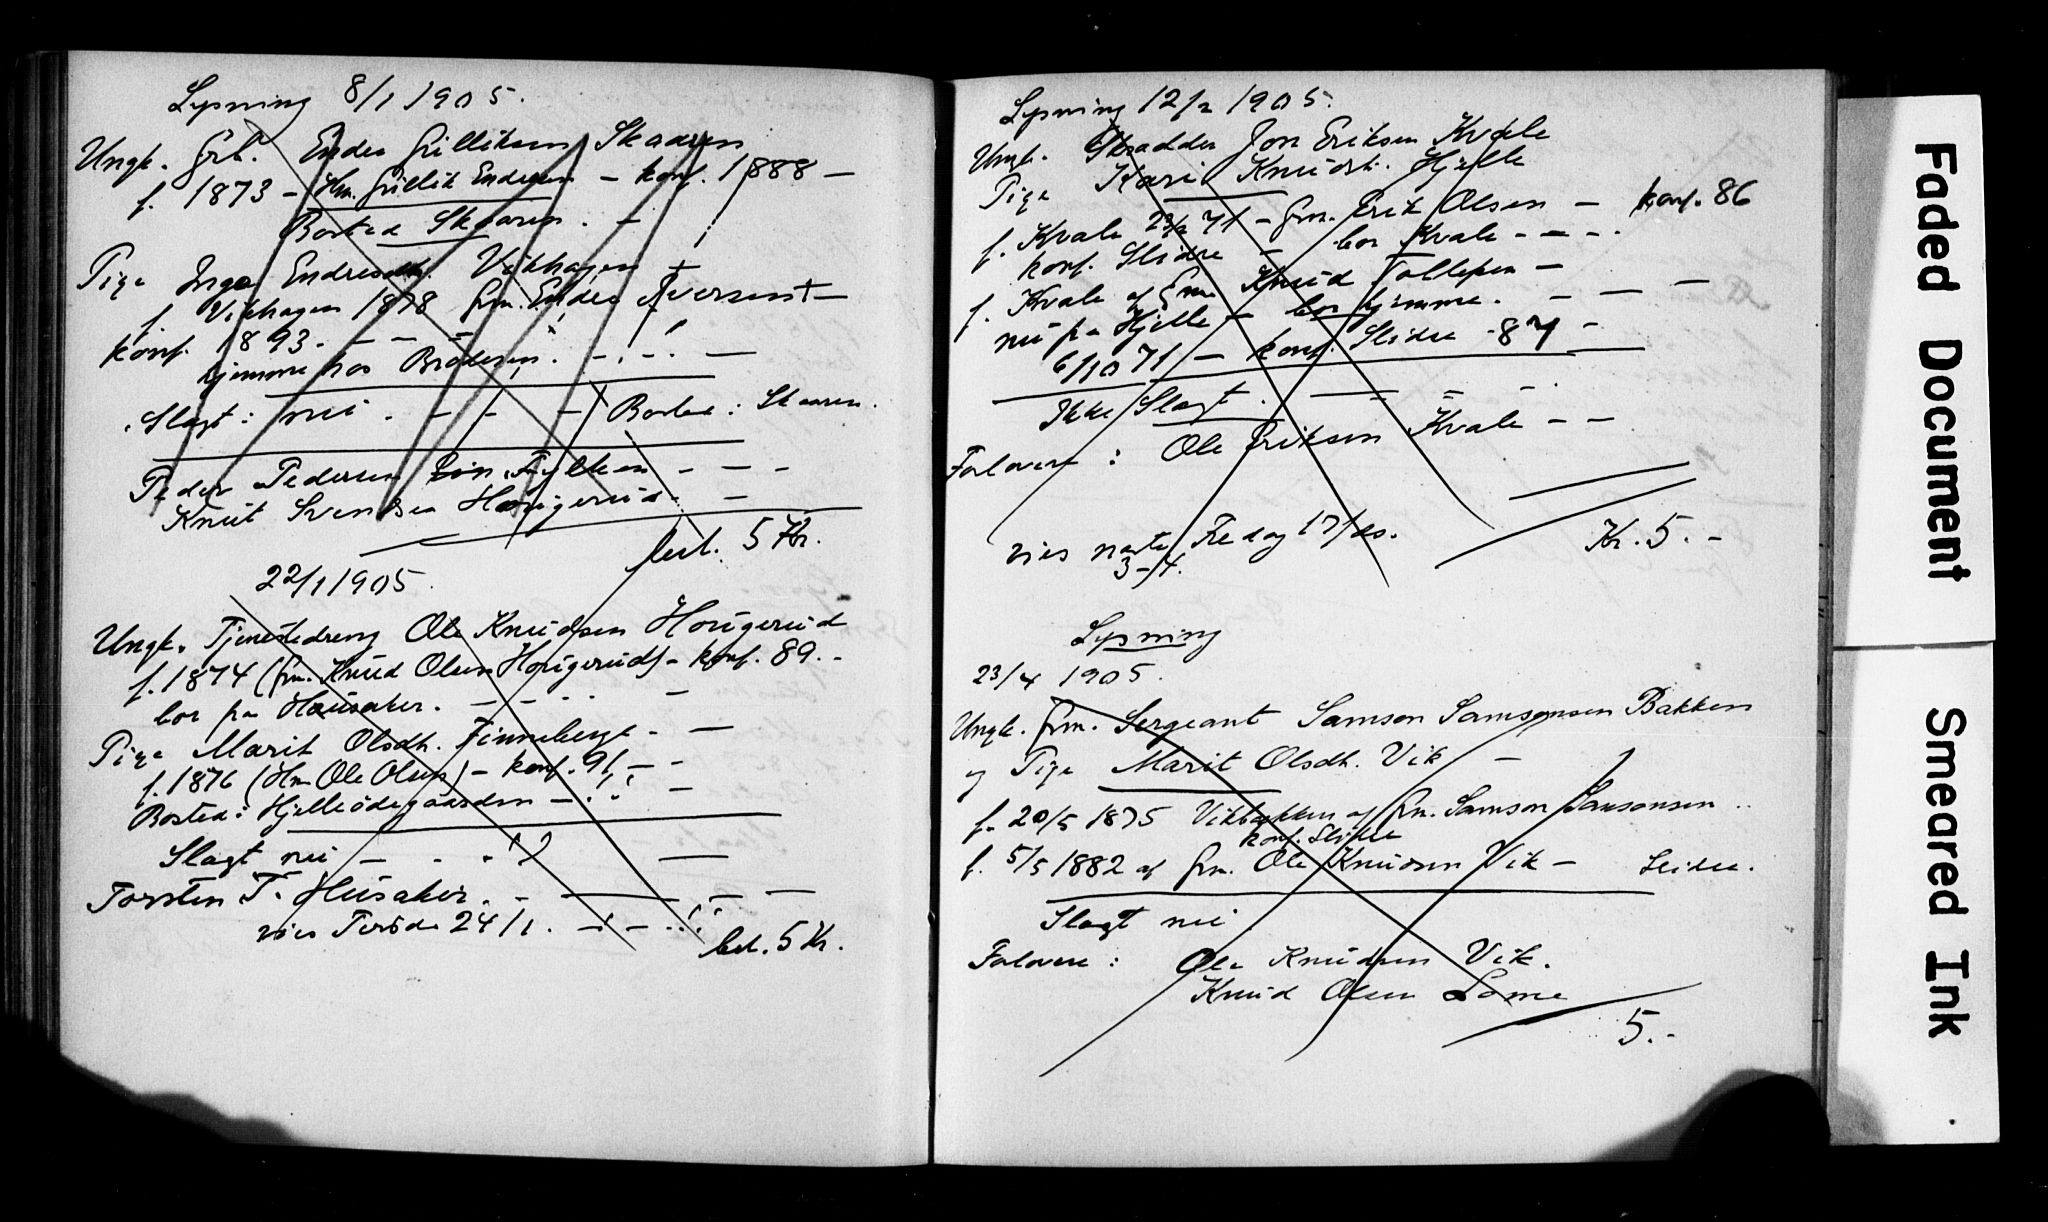 Lysning 8/1 1905.
Ungk. Grb. Endre Gulliksen Skaaren
f. 1873 - Hm. Gullik Endresen - konf. 1888 -
Bosted Skaaren. -
Pige Inga Endresdtr. Vikhagen
f. Vikhagen 1878 Grm. Endre Iversen -
konf. 1893. - - -
hjemme hos Broderen. - . - . -
Slagt: nei. - - - Bosted: Skaaren.
Peder Pedersen Fylken - - -
Knut Svendsen Hougerud. -
bet. 5 Kr.
22/1 1905.
Ungk. Tjenestedreng Ole Knudsen Hougerud
f. 1874 (Grm. Knud Olsen Hougerud) - konf. 89. -
bor på Housaker. - - . -
Pige Marit Olsdtr. Finneberge. - -
f. 1876 (Hm Ole Olsen) - konf. 91 - -
Bosted: Hjelleödegaarden - -
Slagt nei - - -
Torsten T. Husaker. - - - -
vies Tirsdag 24/1. - - -
bet. 5 Kr.
Lysning 12/2 1905.
Ungk. Skrædder Jon Eriksen Kvale
Pige Kari Knudsdt. Hjelle
f. Kvale 23/2 71 - Grm. Erik Olsen - konf. 86
konf. Slidre - bor Kvale - - - .
f. Kvale af Grm Knud Tollefsen -
nu på Hjelle - bor hjemme. - - -
6/10 71 - konf. Slidre - 87 -
Ikke Slagt. - = -
Forlovere : Ole Eriksen Kvale - -
vies næste Fredag 17/ds.
3-4.
Kr. 5. -
Lysning
23/4 1905.
Ungk. Grm. Sergeant Samson Samsonsen Bakken
og Pige Marit Olsdtr. Vik -
f. 20/5 1875 Vikbakken af Grm. Samson Samsonsen
konf. Slidre
f. 5/5 1882 af Grm. Ole Knudsen Vik - Slidre.
Slagt nei
Forlovere : Ole Knudsen Vik.
Knud Olsen Lome
5. -
Faded Document
Smeared Ink